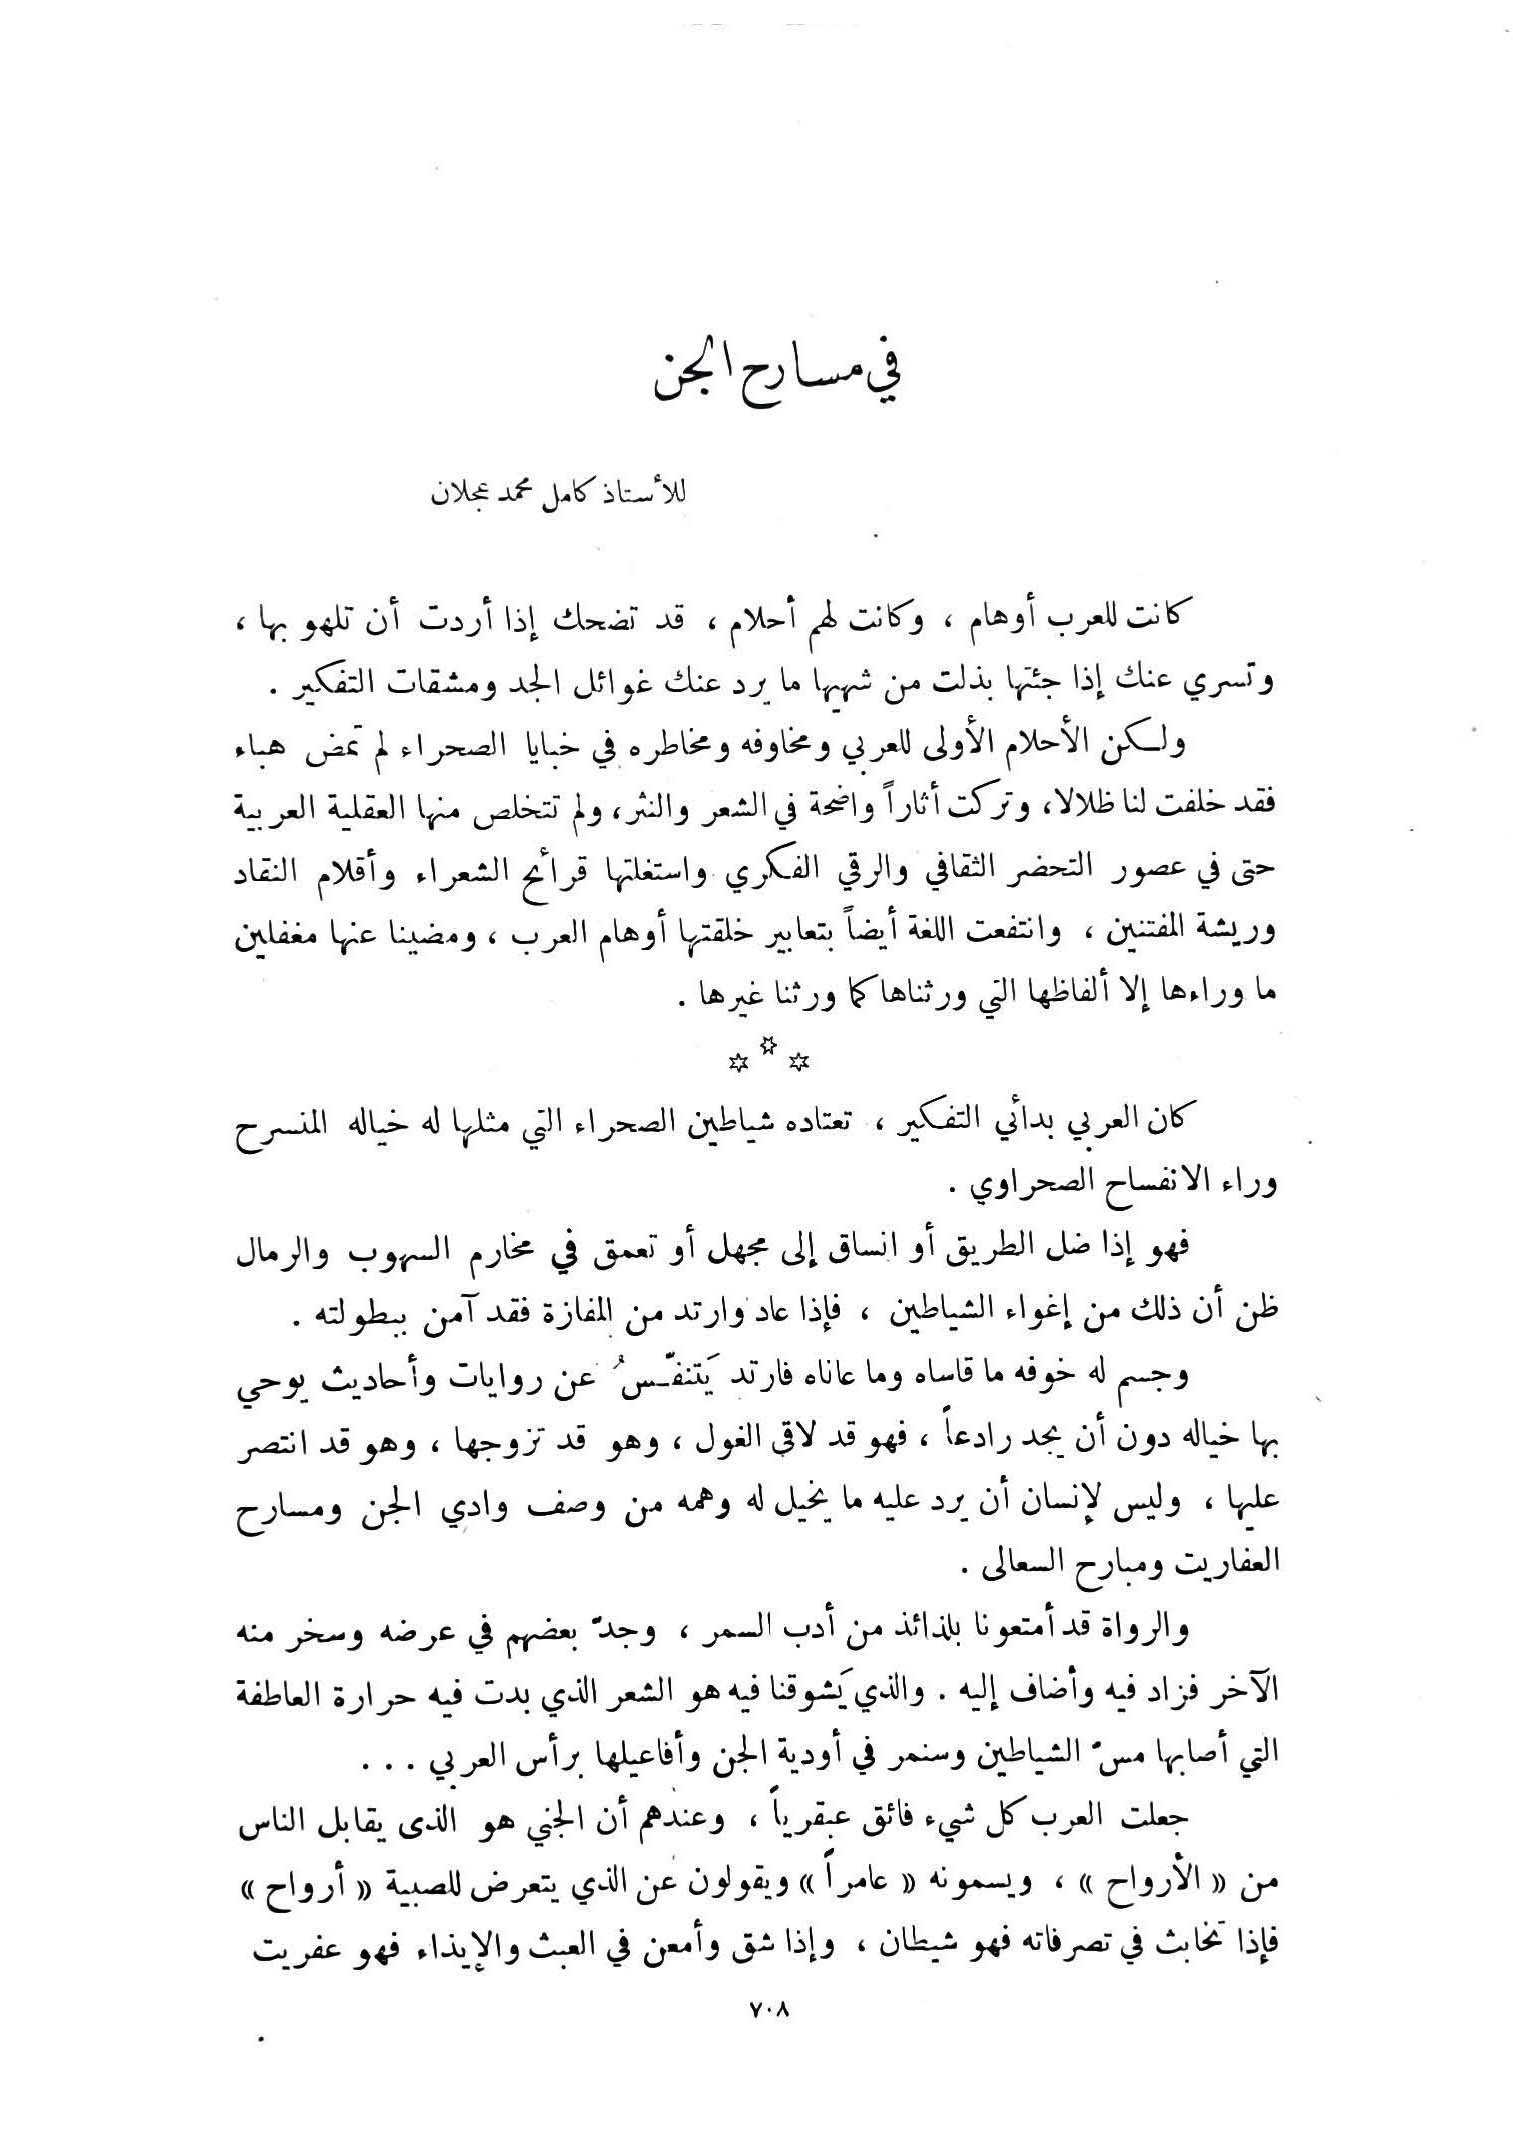 في مسارح الجن
للأستاذ كامل محمد عجلان
كانت للعرب أوهام ، وكانت لهم أحلام ، قد تضحك إذا أردت أن تلهو بها ،
وتسري عنك إذا جئتها بذلت من شهيها ما يرد عنك غوائل الجد ومشقات التفكير .
ولكن الأحلام الأولى للعربي ومخاوفه ومخاطره في خبايا الصحراء لم تمض هباء
فقد خلفت لنا ظلالا، وتركت أثاراً واضحة في الشعر والنثر، ولم تتخلص منها العقلية العربية
حتى في عصور التحضر الثقافي والرقي الفكري واستغلتها قرائح الشعراء وأقلام النقاد
وريشة المفتنين ، وانتفعت اللغة أيضاً بتعابير خلقتها أوهام العرب ، ومضينا عنها مغفلين
ما وراءها إلا ألفاظها التي ورثناها كما ورثنا غيرها .
✡ ✡ ✡
كان العربي بدائي التفكير ، تعتاده شياطين الصحراء التي مثلها له خياله المنسرح
وراء الانفساح الصحراوي .
فهو إذا ضل الطريق أو انساق إلى مجهل أو تعمق في مخارم السهوب والرمال
ظن أن ذلك من إغواء الشياطين ، فإذا عاد وارتد من المفازة فقد آمن ببطولته .
وجسم له خوفه ما قاساه وما عاناه فارتد يَتنفّسُ عن روايات وأحاديث يوحي
بها خياله دون أن يجد رادعاً ، فهو قد لاقى الغول ، وهو قد تزوجها ، وهو قد انتصر
عليها ، وليس لإنسان أن يرد عليه ما يخيل له وهمه من وصف وادي الجن ومسارح
العفاريت ومبارح السعالى .
والرواة قد أمتعونا بلذائذ من أدب السمر ، وجدّ بعضهم في عرضه وسخر منه
الآخر فزاد فيه وأضاف إليه . والذي يَشوقنا فيه هو الشعر الذي بدت فيه حرارة العاطفة
التي أصابها مسّ الشياطين وسنمر في أودية الجن وأفاعيلها برأس العربي . . .
جعلت العرب كل شيء فائق عبقرياً ، وعندهم أن الجني هو الذى يقابل الناس
من « الأرواح » ، ويسمونه « عامراً » ويقولون عن الذي يتعرض للصبية « أرواح »
فإذا تخابث في تصرفاته فهو شيطان ، وإذا شق وأمعن في العبث والإيذاء فهو عفريت
٧٠٨